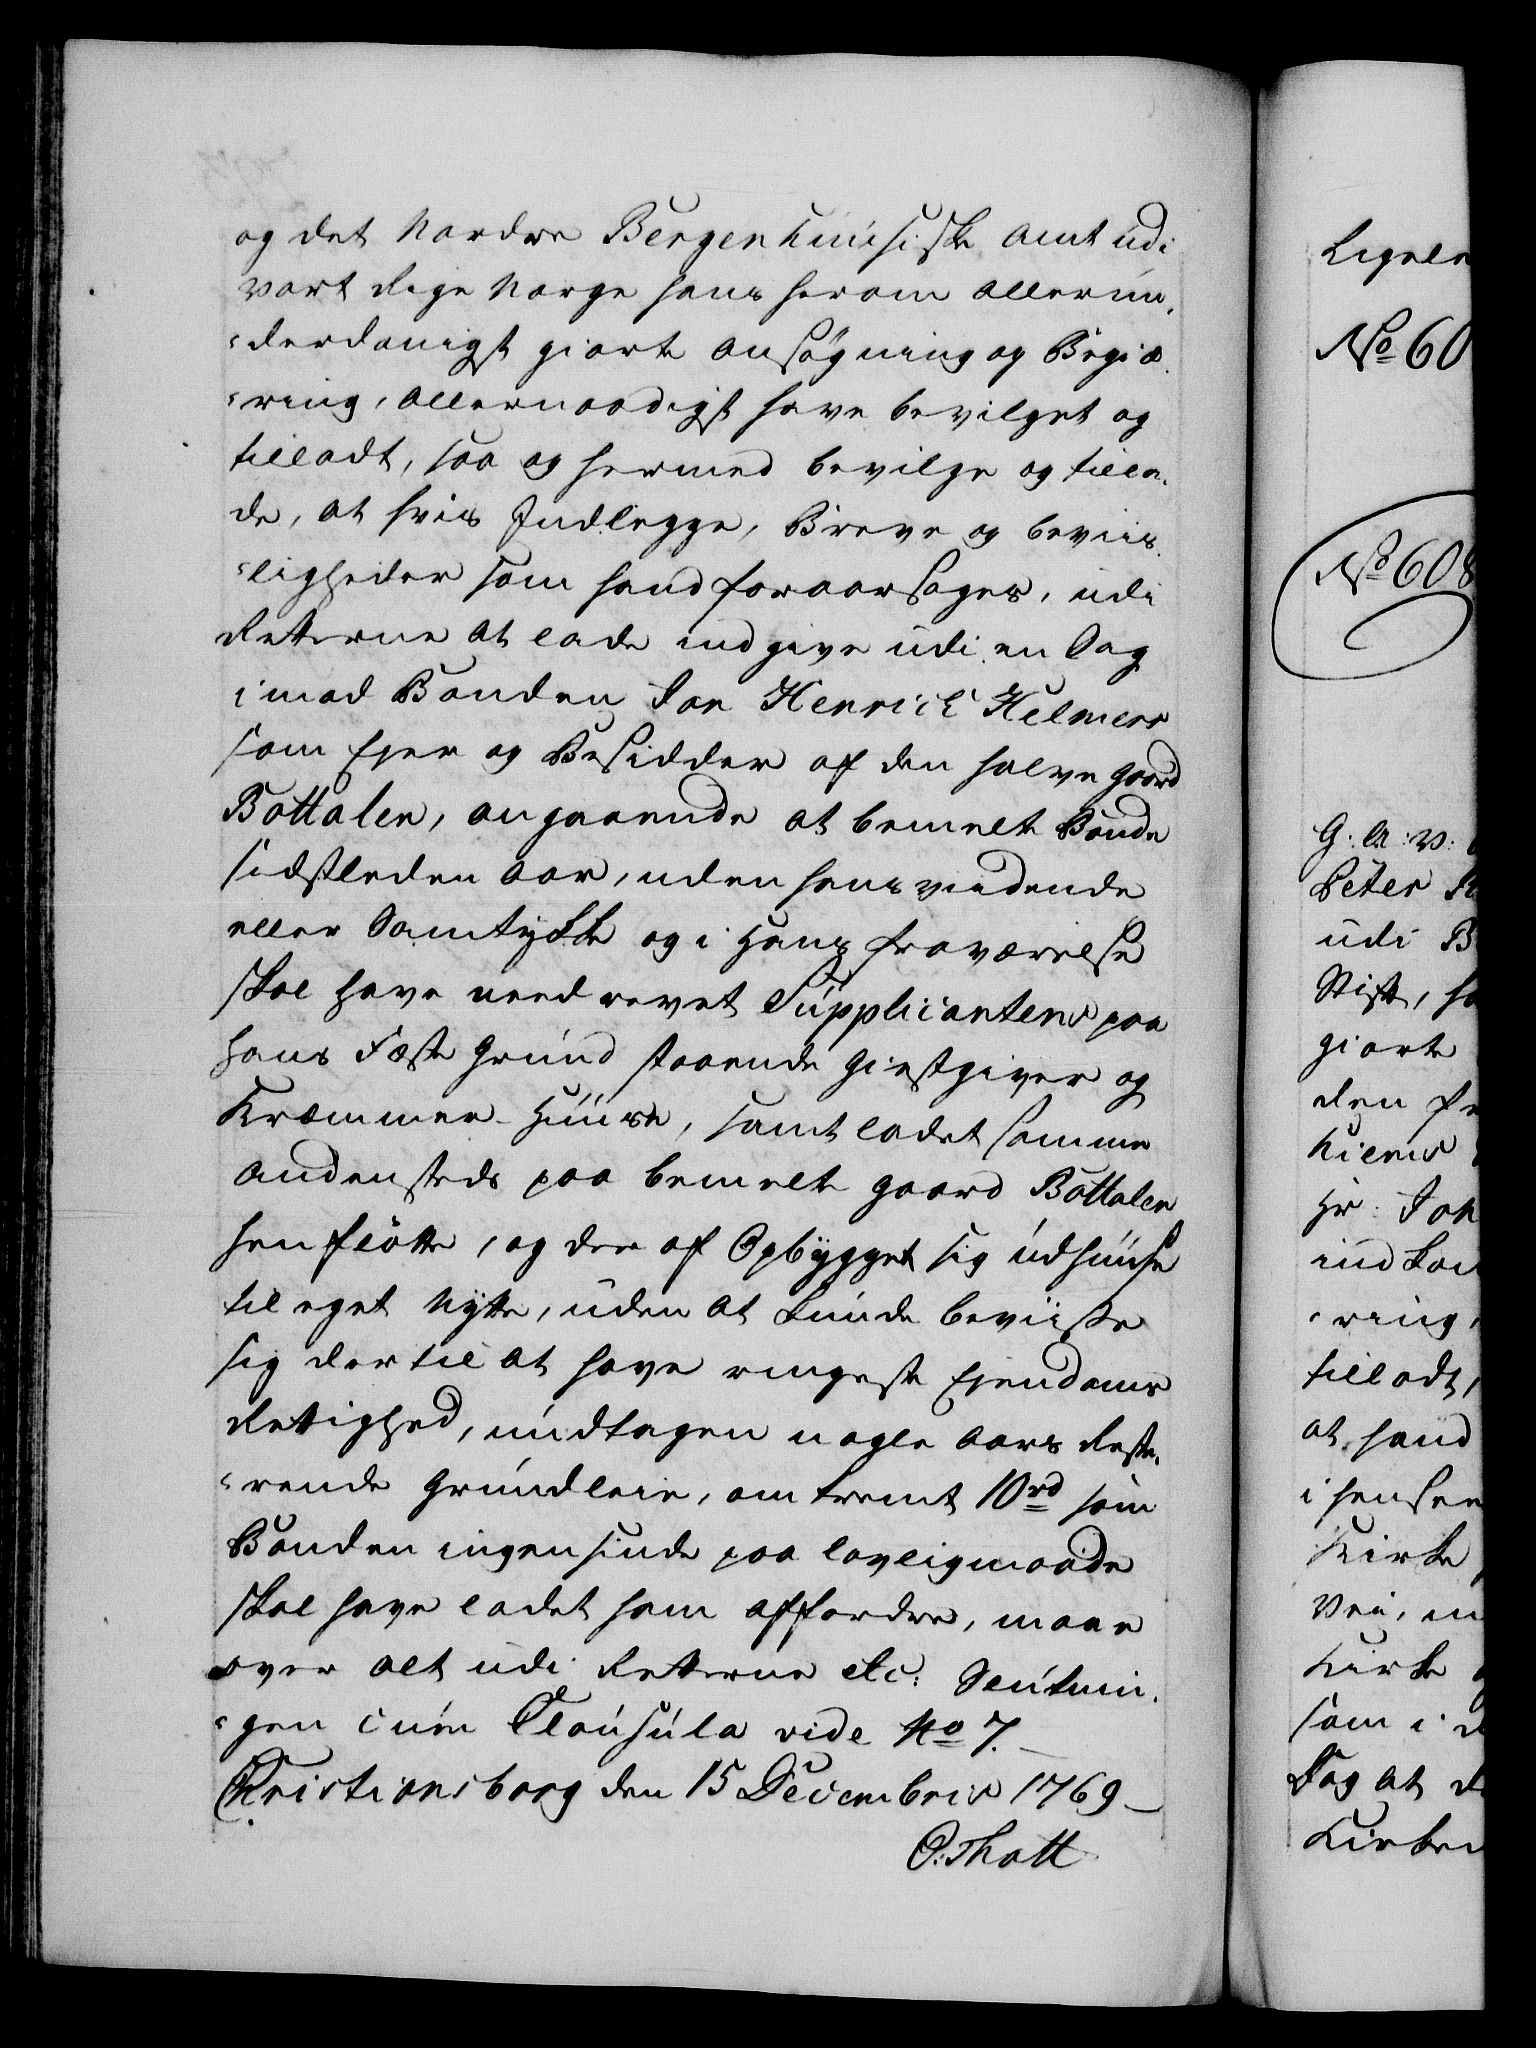 og det Nordre Bergenhuusiske Amt udi
vort Rige Norge hans herom allerun„
„derdanigst giorte Ansøgning og Begiæ„
„ring, allernaadigst have bevilget og
tilladt, saa og hermed bevilge og tilla„
de, at hvis Indlegge, Breve og beviis„
„ligheder som hand foraarsages, udi
Retterne at lade indgive udi en Sag
imod Bonden Jon Henrick Helmers
som Ejer og Besidder af den halve gaard
Bottolen, angaaende at bemelte Bonde
sidstleden Aar, uden hans vidende
eller Samtykke og i Hans fraværelse
skal have need revet Supplicantens paa
hans Fæste Grund staaende Giestgiver og
Kræmmer-Huuse, samt ladet samme
andensteds paa bemelte gaard Bottolen
hen fløtte, og der af Opbygget sig Udhuuse
til eget Nytte, uden at kunde beviise
sig dertil at have ringeste Ejendoms
Rettighed, undtagen nogle Aars Reste„
„rende Grundleie, omtrent 10 rd som
Bonden ingensinde paa lovlig maade
skal have ladet ham affordre, maae
over alt udi Retterne etc: Slutnin„
„gen cum Clausula vide No 7.
Christiansborg den 15 Decembris 1769
O. Thott
Ligele
No 60
No 608
G: A: V:
Peter
udi B
Stift, ha
giorte
den
Hr. Joh
ring,
tilladt,
at hand
Kirke
Vei,
Kirke
som i d
Dag at d
Kirken